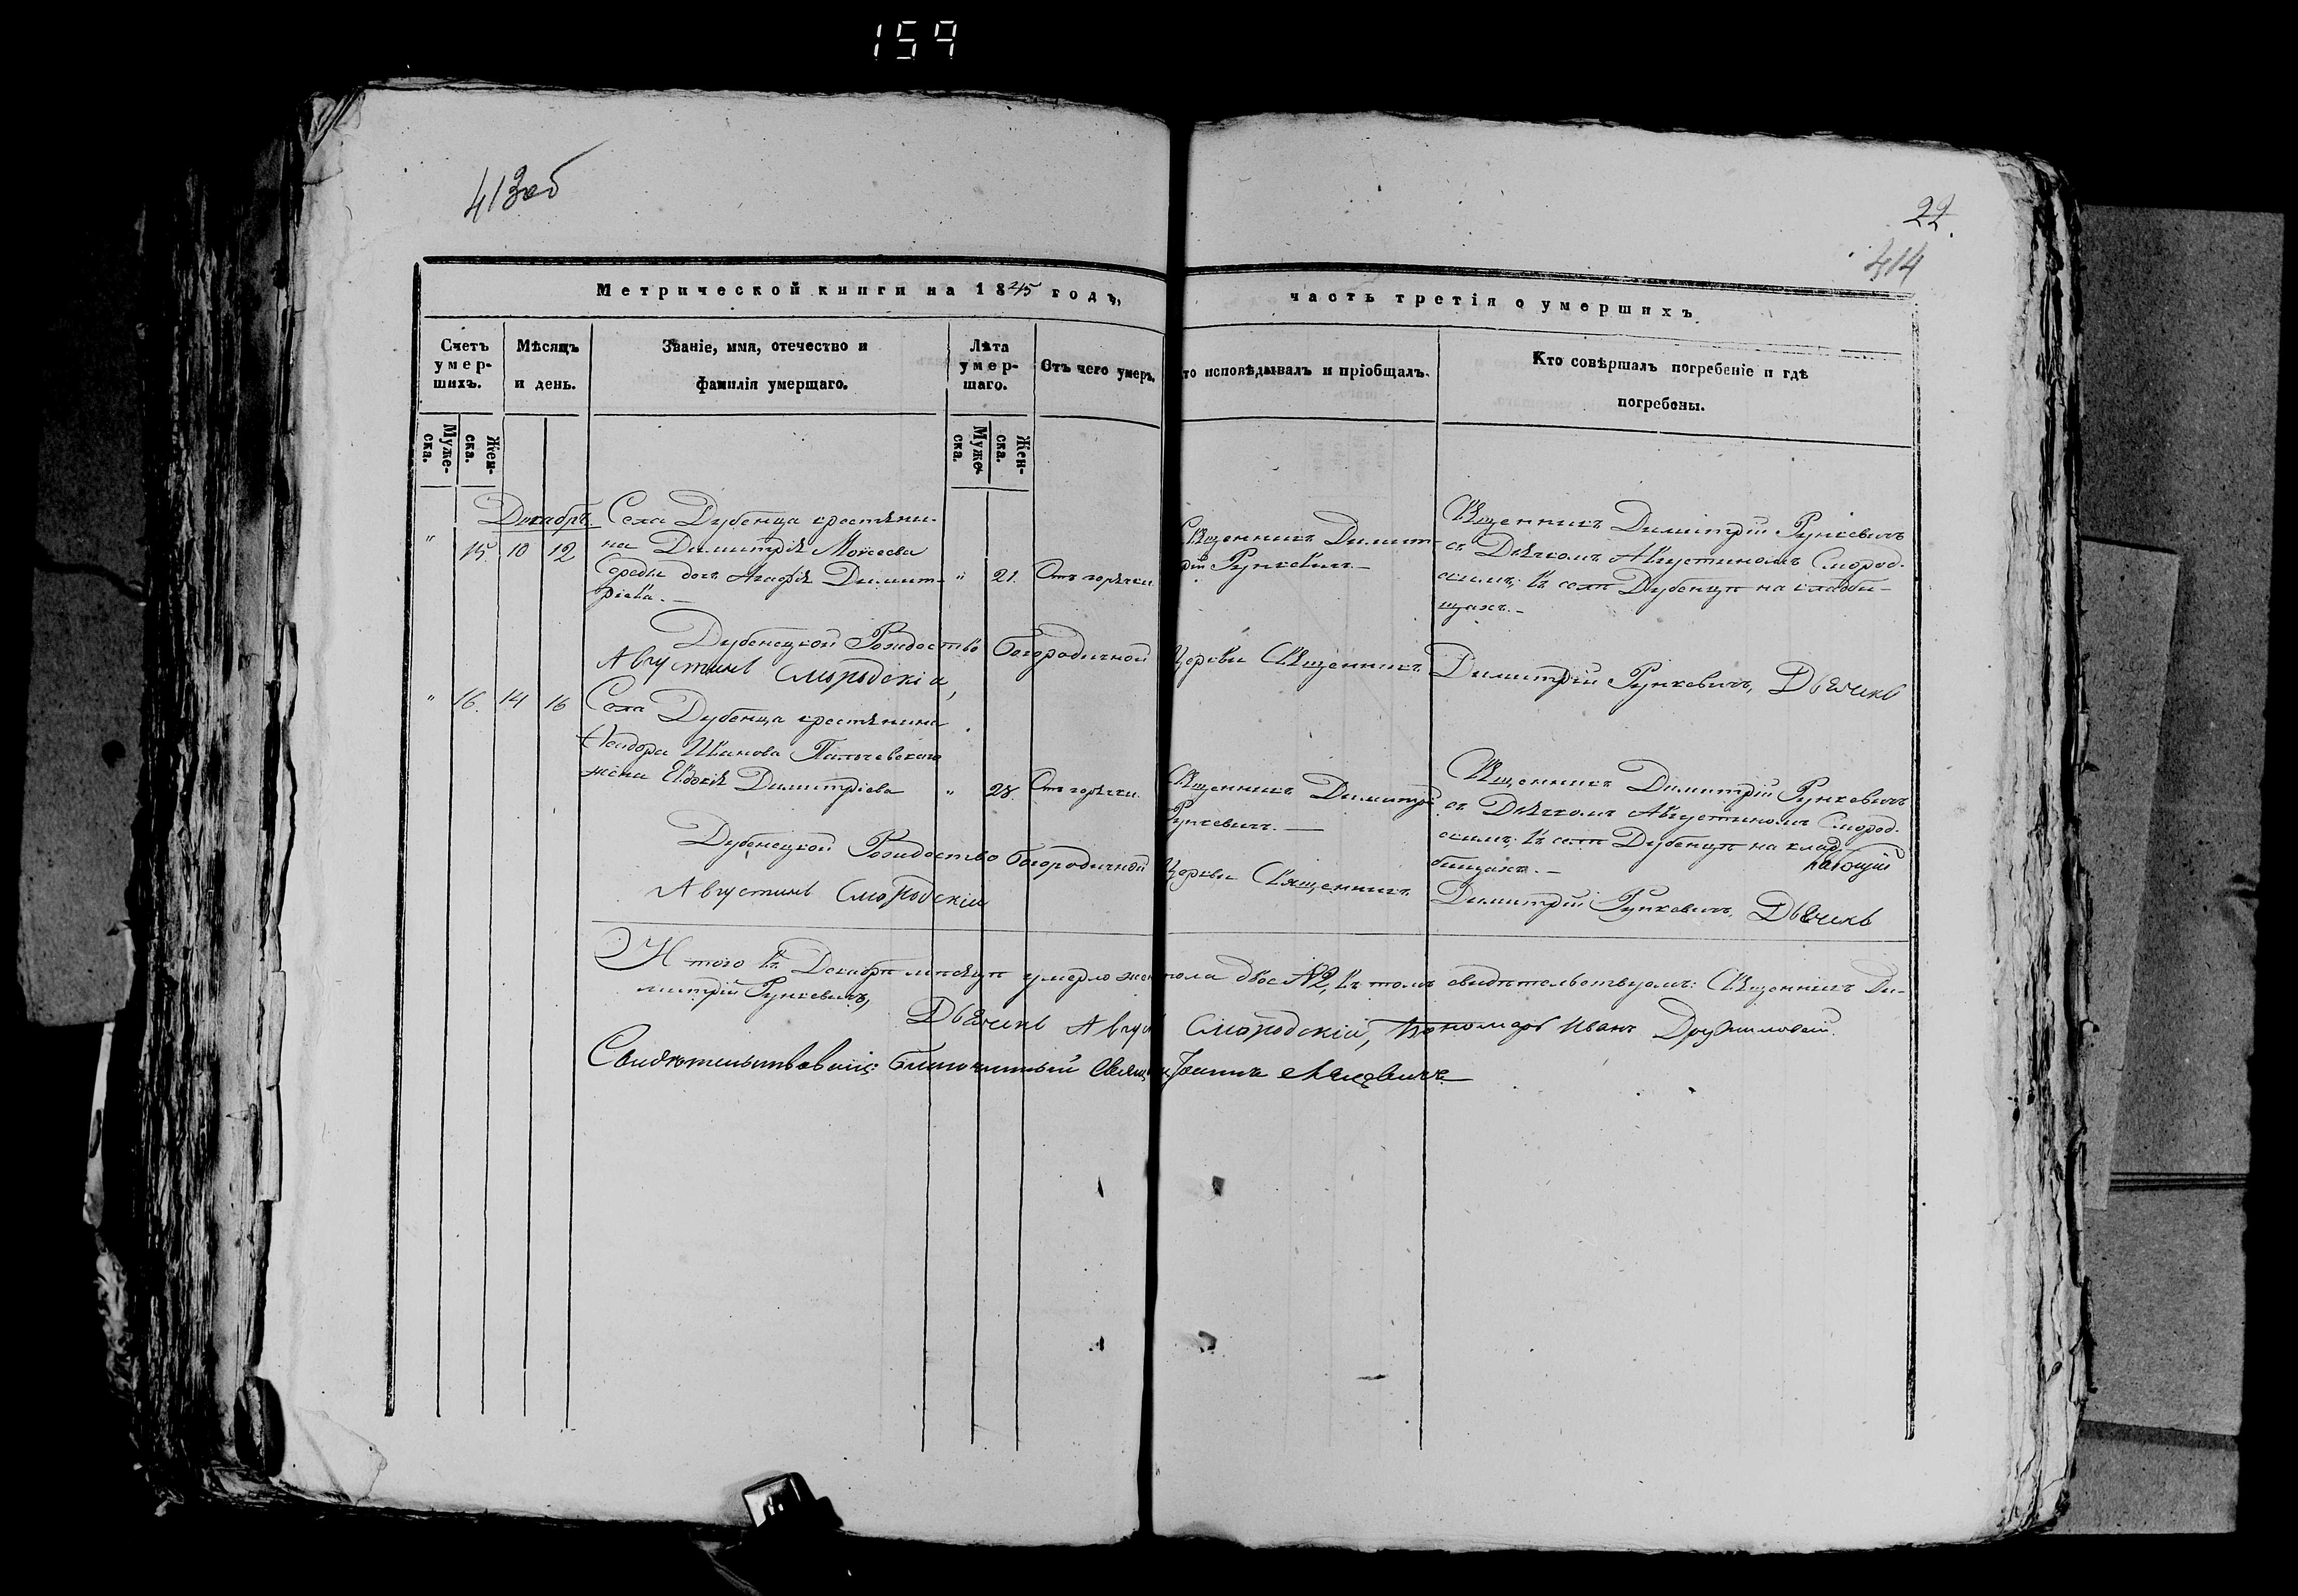 159
413об
22.
414
Метрической книги на 1845 годъ,
часть третія о умершихъ
Счетъ умер-шихъ.
Мѣсяцъ и день.
Званіе, имя, отечество и фамилія умершаго.
Лѣта умер-шаго.
Отъ чего умеръ.
то исповѣдывалъ и пріобщалъ.
Кто совѣршалъ погребеніе и гдѣ погребены.
Муже-ска.
Жен-ска.
Муже-ска.
Жен-ска.
Декабрь.
" 15. 10 12
Села Дубенца крестяни-
на Димитрія Моисеева
дочь Агафія Димит-
ріева. —
" 21. Отъ горячки.
Священникъ Димит-
рій Рункевичъ —
Священникъ Димитрій Рункевичъ
съ Дьячкомъ Августиномъ Смород-
скимъ, въ селѣ Дубенцѣ на кладби-
щахъ. —
Дубенецкой Рождество Богородичной Церкви Священникъ Димитрій Рункевичъ, Дьячекъ
Августинъ Смородскій,
" 16. 14 16
Села Дубенца крестянина
Ѳеодора Иванова
жена Евдокія Димитріева
" 28. Отъ горячки.
Священникъ Димитрій
Рункевичъ. —
Священникъ Димитрій Рункевичъ
съ Дьячкомъ Августиномъ Смород-
скимъ, въ селѣ Дубенцѣ на клад-
бищахъ. —
Дубенецкой Рождество Богородичной Церкви Священникъ Димитрій Рункевичъ, Дьячекъ
Августинъ Смородскій
Итого въ Декабрѣ мѣсяцѣ умерло жен пола двое №2, въ томъ свидѣтельствуемъ: Священникъ Ди-
митрій Рункевичъ,
Дьячекъ Авгус Смородскій, Пономарь Иванъ
Свидѣтельствовавшій: Благочинный Свящ Іоаннъ